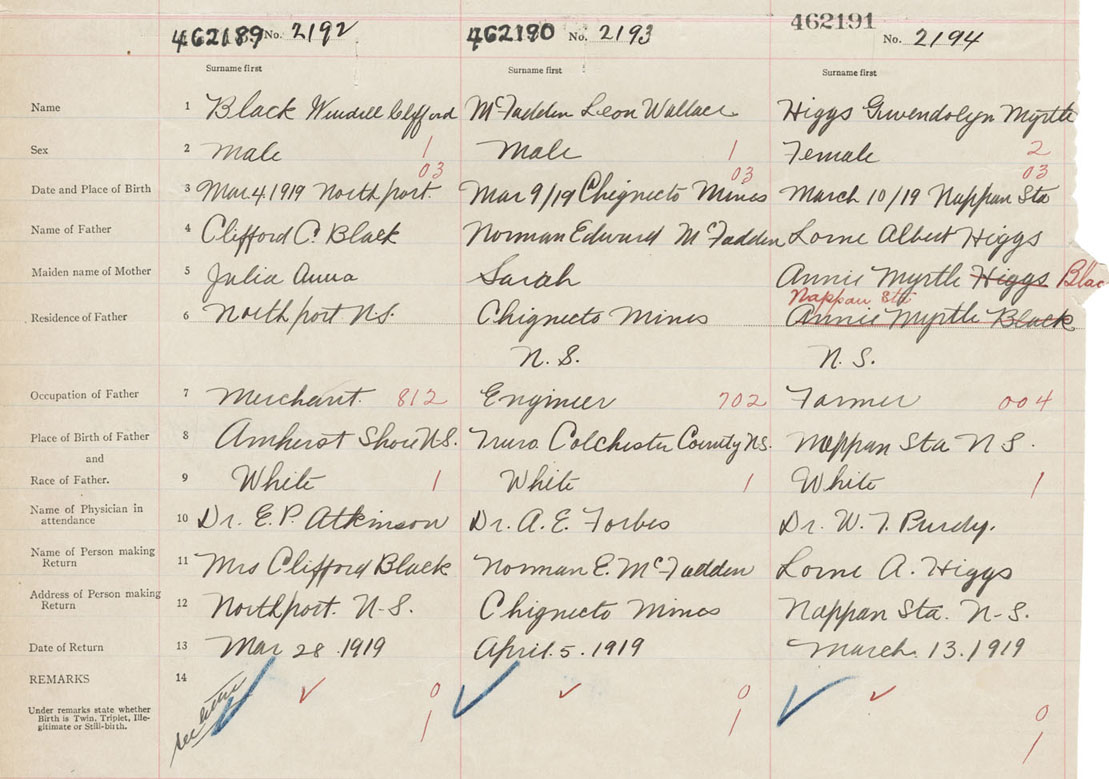 462189 No. 2192 462190 No. 2193 462191 No. 2194
Surname first Surname first Surname first
Name 1 Black Wendell Clifford McFadden Leon Wallace Higgs Gwendolyn Myrtle
Sex 2 Male 1 Male 1 Female 2
03 03 03
Date and Place of Birth 3 Mar 4. 1919 Northport. Mar 9/19 Chignecto Mines March 10/19 Nappan Sta
Name of Father 4 Clifford C. Black Norman Edward McFadden Lorne Albert Higgs
Maiden name of Mother 5 Julia Anna Sarah Annie Myrtle Higgs Blac
Nappan Sta
Residence of Father 6 Northport N.S. Chignecto Mines Annie Myrtle Black
N. S. N. S.
Occupation of Father 7 Merchant. 812 Engineer 702 Farmer 004
Place of Birth of Father 8 Amherst Shore N.S. Truro Colchester County N.S. Nappan Sta N S.
and
Race of Father. 9 White 1 White 1 White 1
Name of Physician in
attendance 10 Dr. E. P. Atkinson Dr. A. E. Forbes Dr. W. T. Purdy.
Name of Person making
Return 11 Mrs Clifford Black Norman E. McFadden Lorne A. Higgs
Address of Person making
Return 12 Northport. N-S. Chignecto Mines Nappan Sta. N-S.
Date of Return 13 Mar 28. 1919 April. 5. 1919 March. 13. 1919
REMARKS 14
see letter 0 0 0
Under remarks state whether
Birth is Twin, Triplet, Ille-
gitimate or Still-birth. 1 1 1